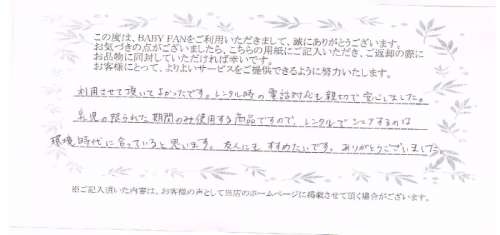 この度は、BABY FANをご利用いただきまして、誠にありがとうございます。
お気づきの点がございましたら、こちらの用紙にご記入いただき、ご返却の際に
お品物に同封していただければ幸いです。
お客様にとって、よりよいサービスをご提供できるように努力いたします。
利用させて頂いてよかったです。レンタル時の電話対応も親切で安心しました。
乳児の限られた期間のみ使用する商品ですので、レンタルでシェアするのは
環境時代に合っていると思います。友人にもすすめたいです。ありがとうございました。
※ご記入頂いた内容は、お客様の声として当店のホームページに掲載させて頂く場合がございます。